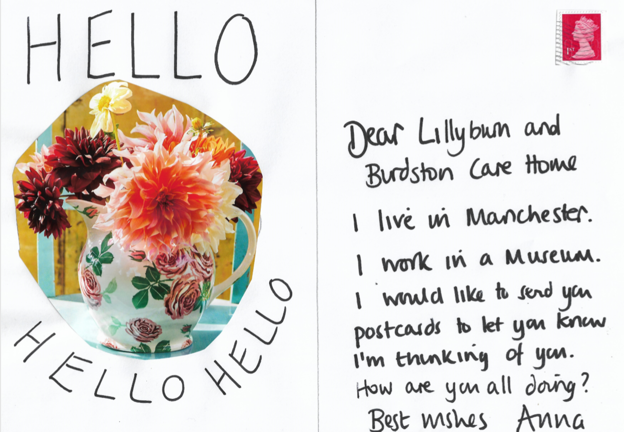 HELLO
HELLO HELLO
1st
Dear Lillyburn and
Birdston Care Home
I live in Manchester.
I work in a Museum.
I would like to send you
postcards to let you know
I'm thinking of you.
How are you all doing?
Best wishes Anna